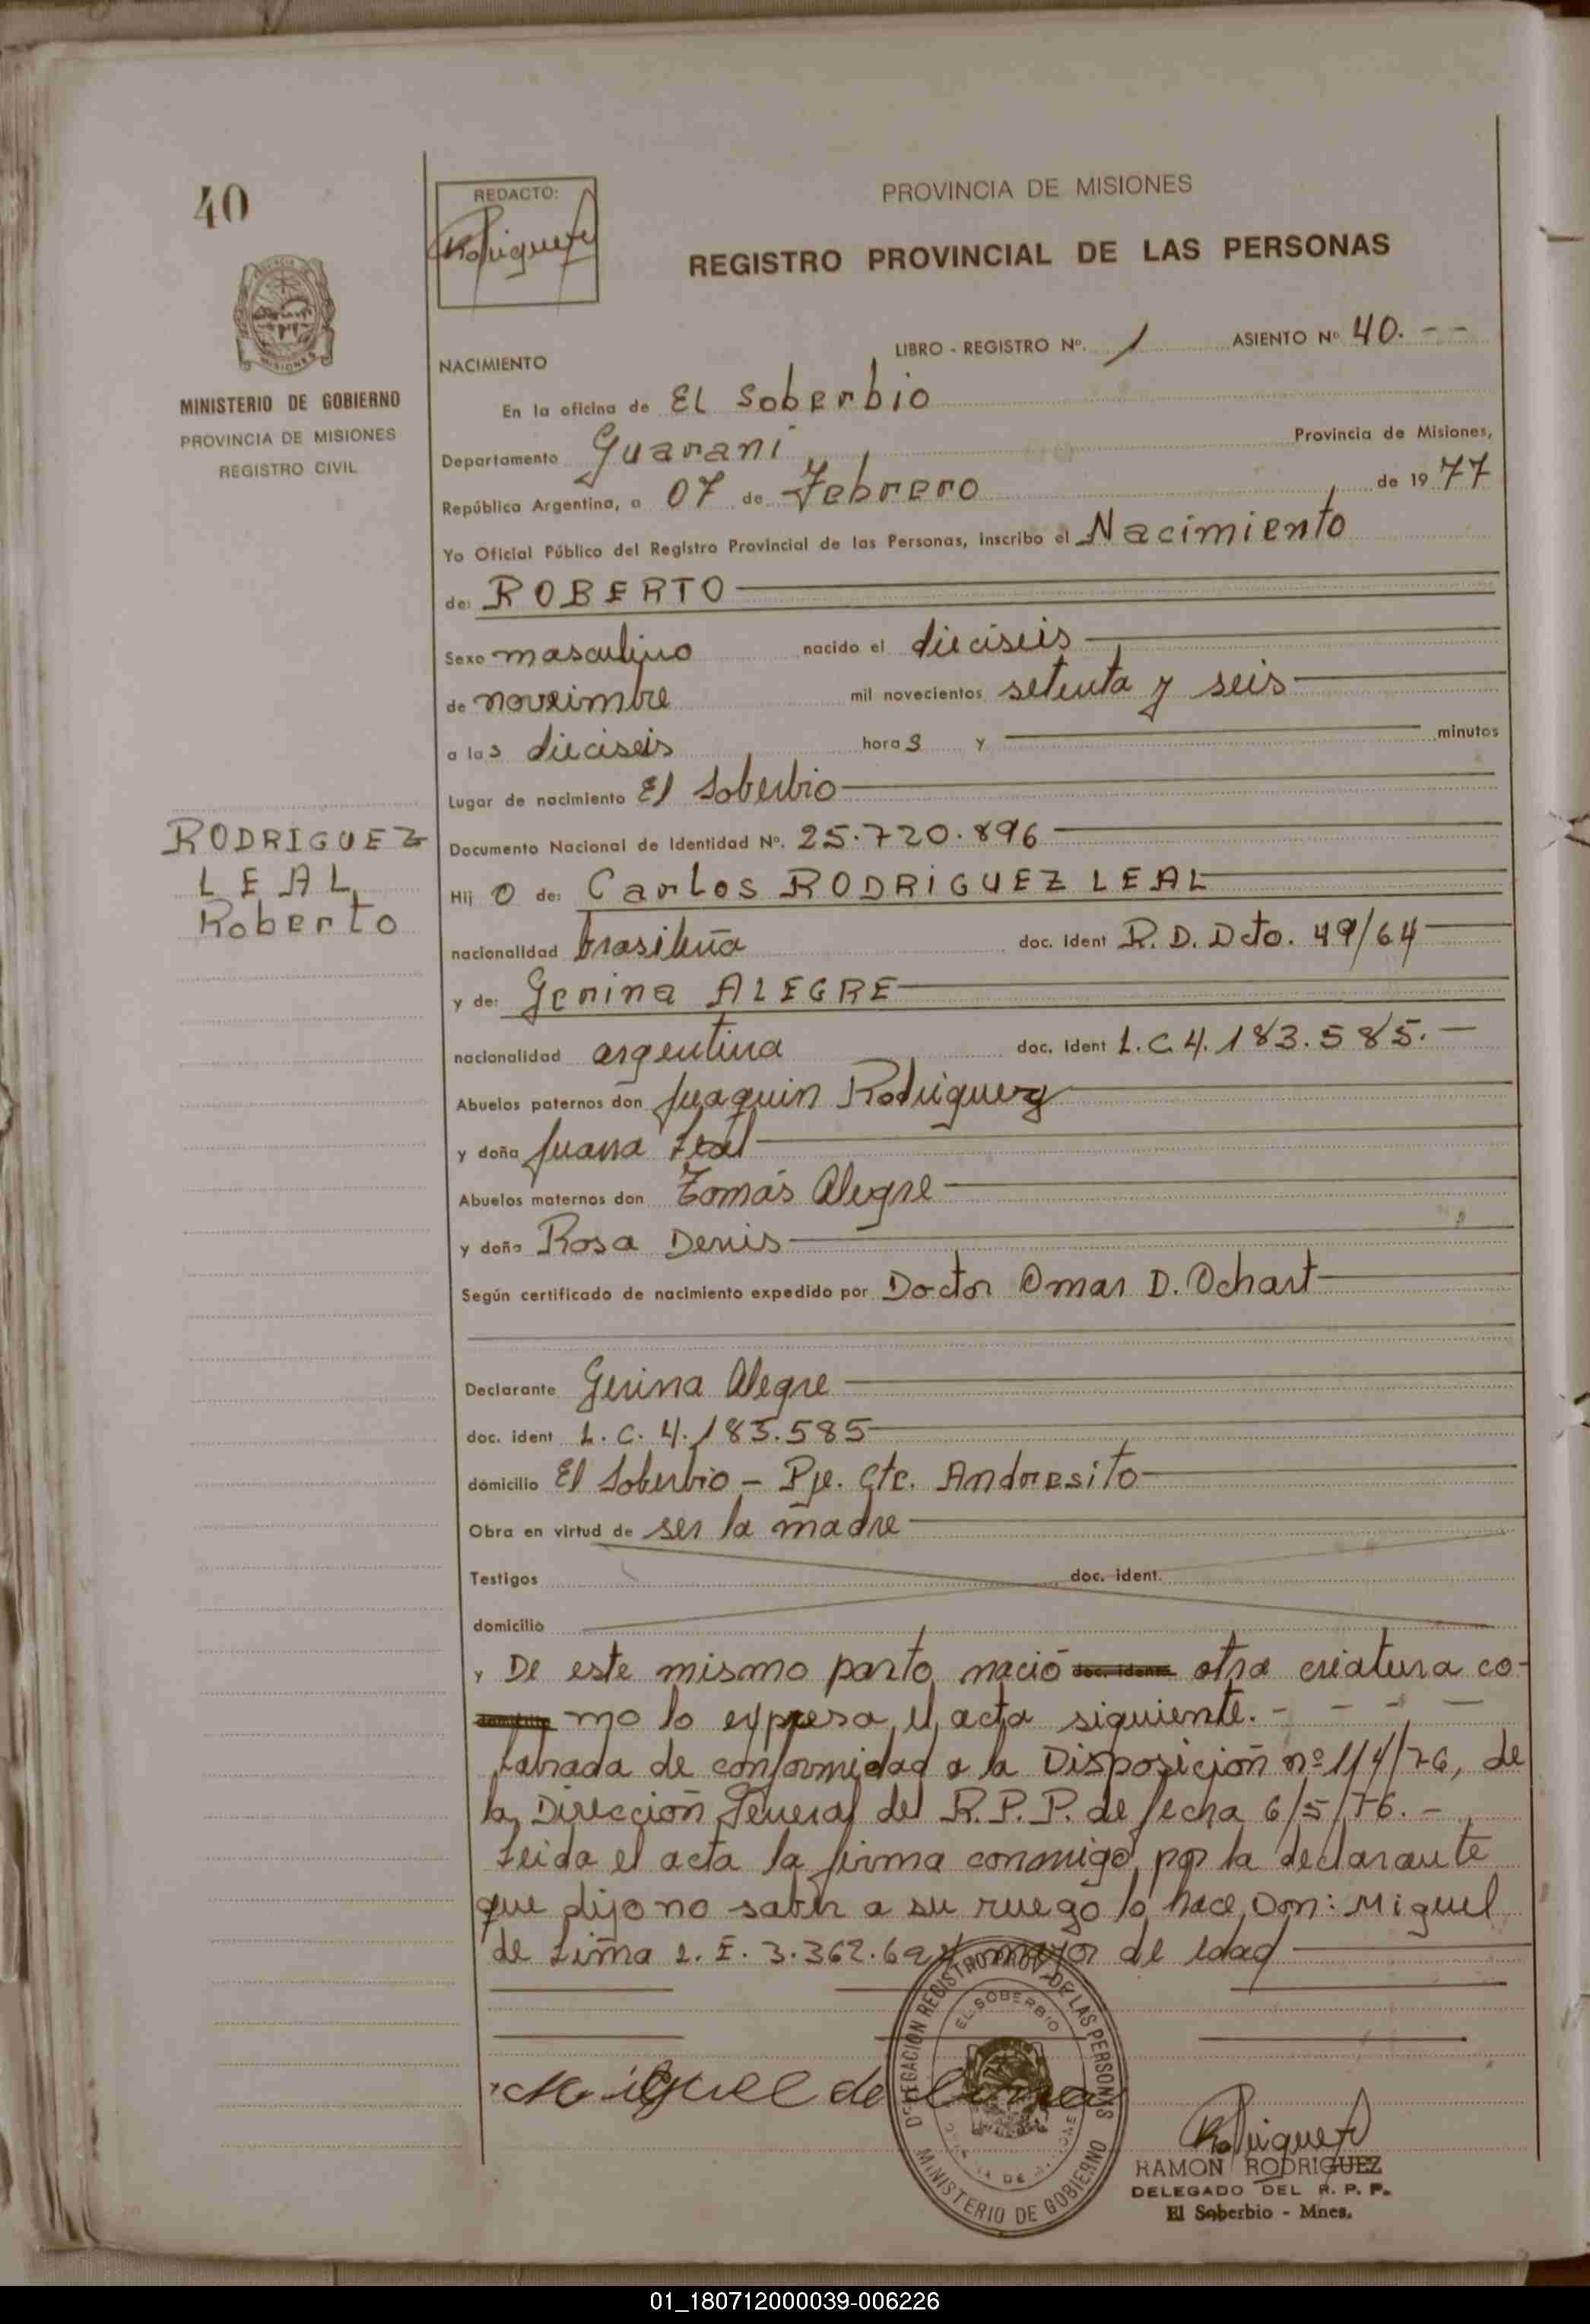 40
REDACTO:
PROVINCIA DE MISIONES
REGISTRO PROVINCIAL DE LAS PERSONAS
MISIONES
MINISTERIO DE GOBIERNO
PROVINCIA DE MISIONES
REGISTRO CIVIL
NACIMIENTO LIBRO - REGISTRO Nº. 1 ASIENTO Nº 40. - -
En la oficina de EL Soberbio
Departamento Guarani Provincia de Misiones,
República Argentina, a 07 de Febrero de 1977
Yo Oficial Público del Registro Provincial de las Personas, inscribo el Nacimiento
de: ROBERTO
Sexo masculino nacido el dieciseis
de noveimbre mil novecientos setenta y seis
a las dieciseis horas y minutos
Lugar de nacimiento El Soberbio
RODRIGUEZ
LEAL
Roberto
Documento Nacional de Identidad Nº. 25.720.896
Hijo de: Carlos RODRIGUEZ LEAL
nacionalidad brasileña doc. Ident R. D. Dcto. 49/64
y de: Genina ALEGRE
nacionalidad argentina doc. Ident L.C. 4.183.585. -
Abuelos paternos don Juaquin Rodriguez
y doña Juana Leal
Abuelos maternos don Tomás Alegre
y doña Rosa Denis
Según certificado de nacimiento expedido por Doctor Omar D. Ochart
Declarante Genina Alegre
doc. ident L. C. 4.183.585
domicilio El Soberbio - Pje. Cte. Andresito
Obra en virtud de ser la madre
Testigos doc. ident.
domicilio
y De este mismo parto nació otra criatura co-
mo lo expresa el acta siguiente. - - - -
Labrada de conformidad a la Disposición nº 114/76, de
la Dirección General del R.P.P. de fecha 6/5/76. -
Leida el acta la firma conmigo, por la declarante
que dijo no saber a su ruego lo hace Don: Miguel
de Lima L. E. 3.362. mayor de edad
Miguel de Lima
DELEGACION REGISTRO PROV. DE LAS PERSONAS
EL SOBERBIO
MINISTERIO DE GOBIERNO
Rodriguez
RAMON RODRIGUEZ
DELEGADO DEL R. P. P.
El Soberbio - Mnes.
01_180712000039-006226